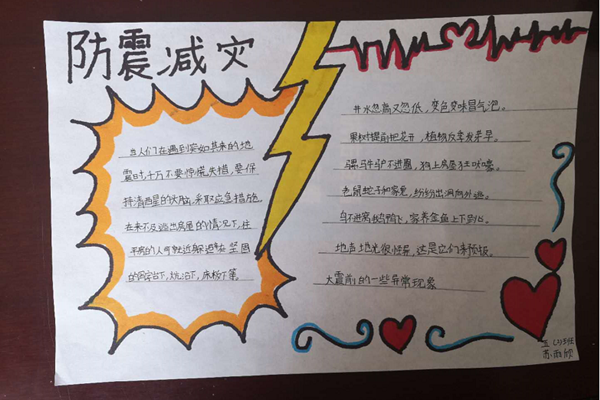 防震减灾
当人们在遇到突如其来的地
震时,千万不要惊慌失措,要保
持清西星的大脑,采取应急措施。
在来不及逃出房屋的情况下,住
平房的人可就近躲避在坚固
的下,炕沿下,床板下等。
井水忽高又忽低,变色变味冒气泡。
果树提前把花开,植物反季发芽早。
骡马牛驴不进圈,独上房屋狂吠嚎。
老鼠蛇子和家兔,纷纷出洞向外逃。
鸟不进窝鹅鸭飞,家养金鱼上下
地声地光很怪异,这是它们来预报。
大震前的一些异常现象
五班
苏雨欣